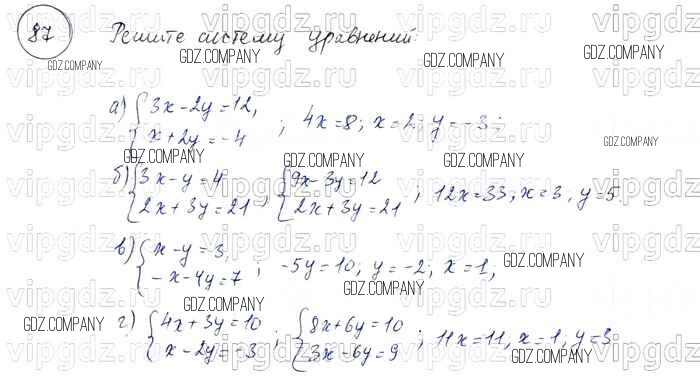 87 Решите систему уравнений:
а) { 3x - 2y = 12, x + 2y = -4 ; 4x = 8; x = 2; y = -3;
б) { 3x - y = 4 2x + 3y = 21 ; { 9x - 3y = 12 2x + 3y = 21 ; 12x = 33, x = 3, y = 5.
в) { x - y = 3, -x - 4y = 7 ; -5y = 10, y = -2; x = 1;
г) { 4x + 3y = 10 x - 2y = -3 ; { 8x + 6y = 10 3x - 6y = 9 ; 11x = 11, x = 1, y = 3